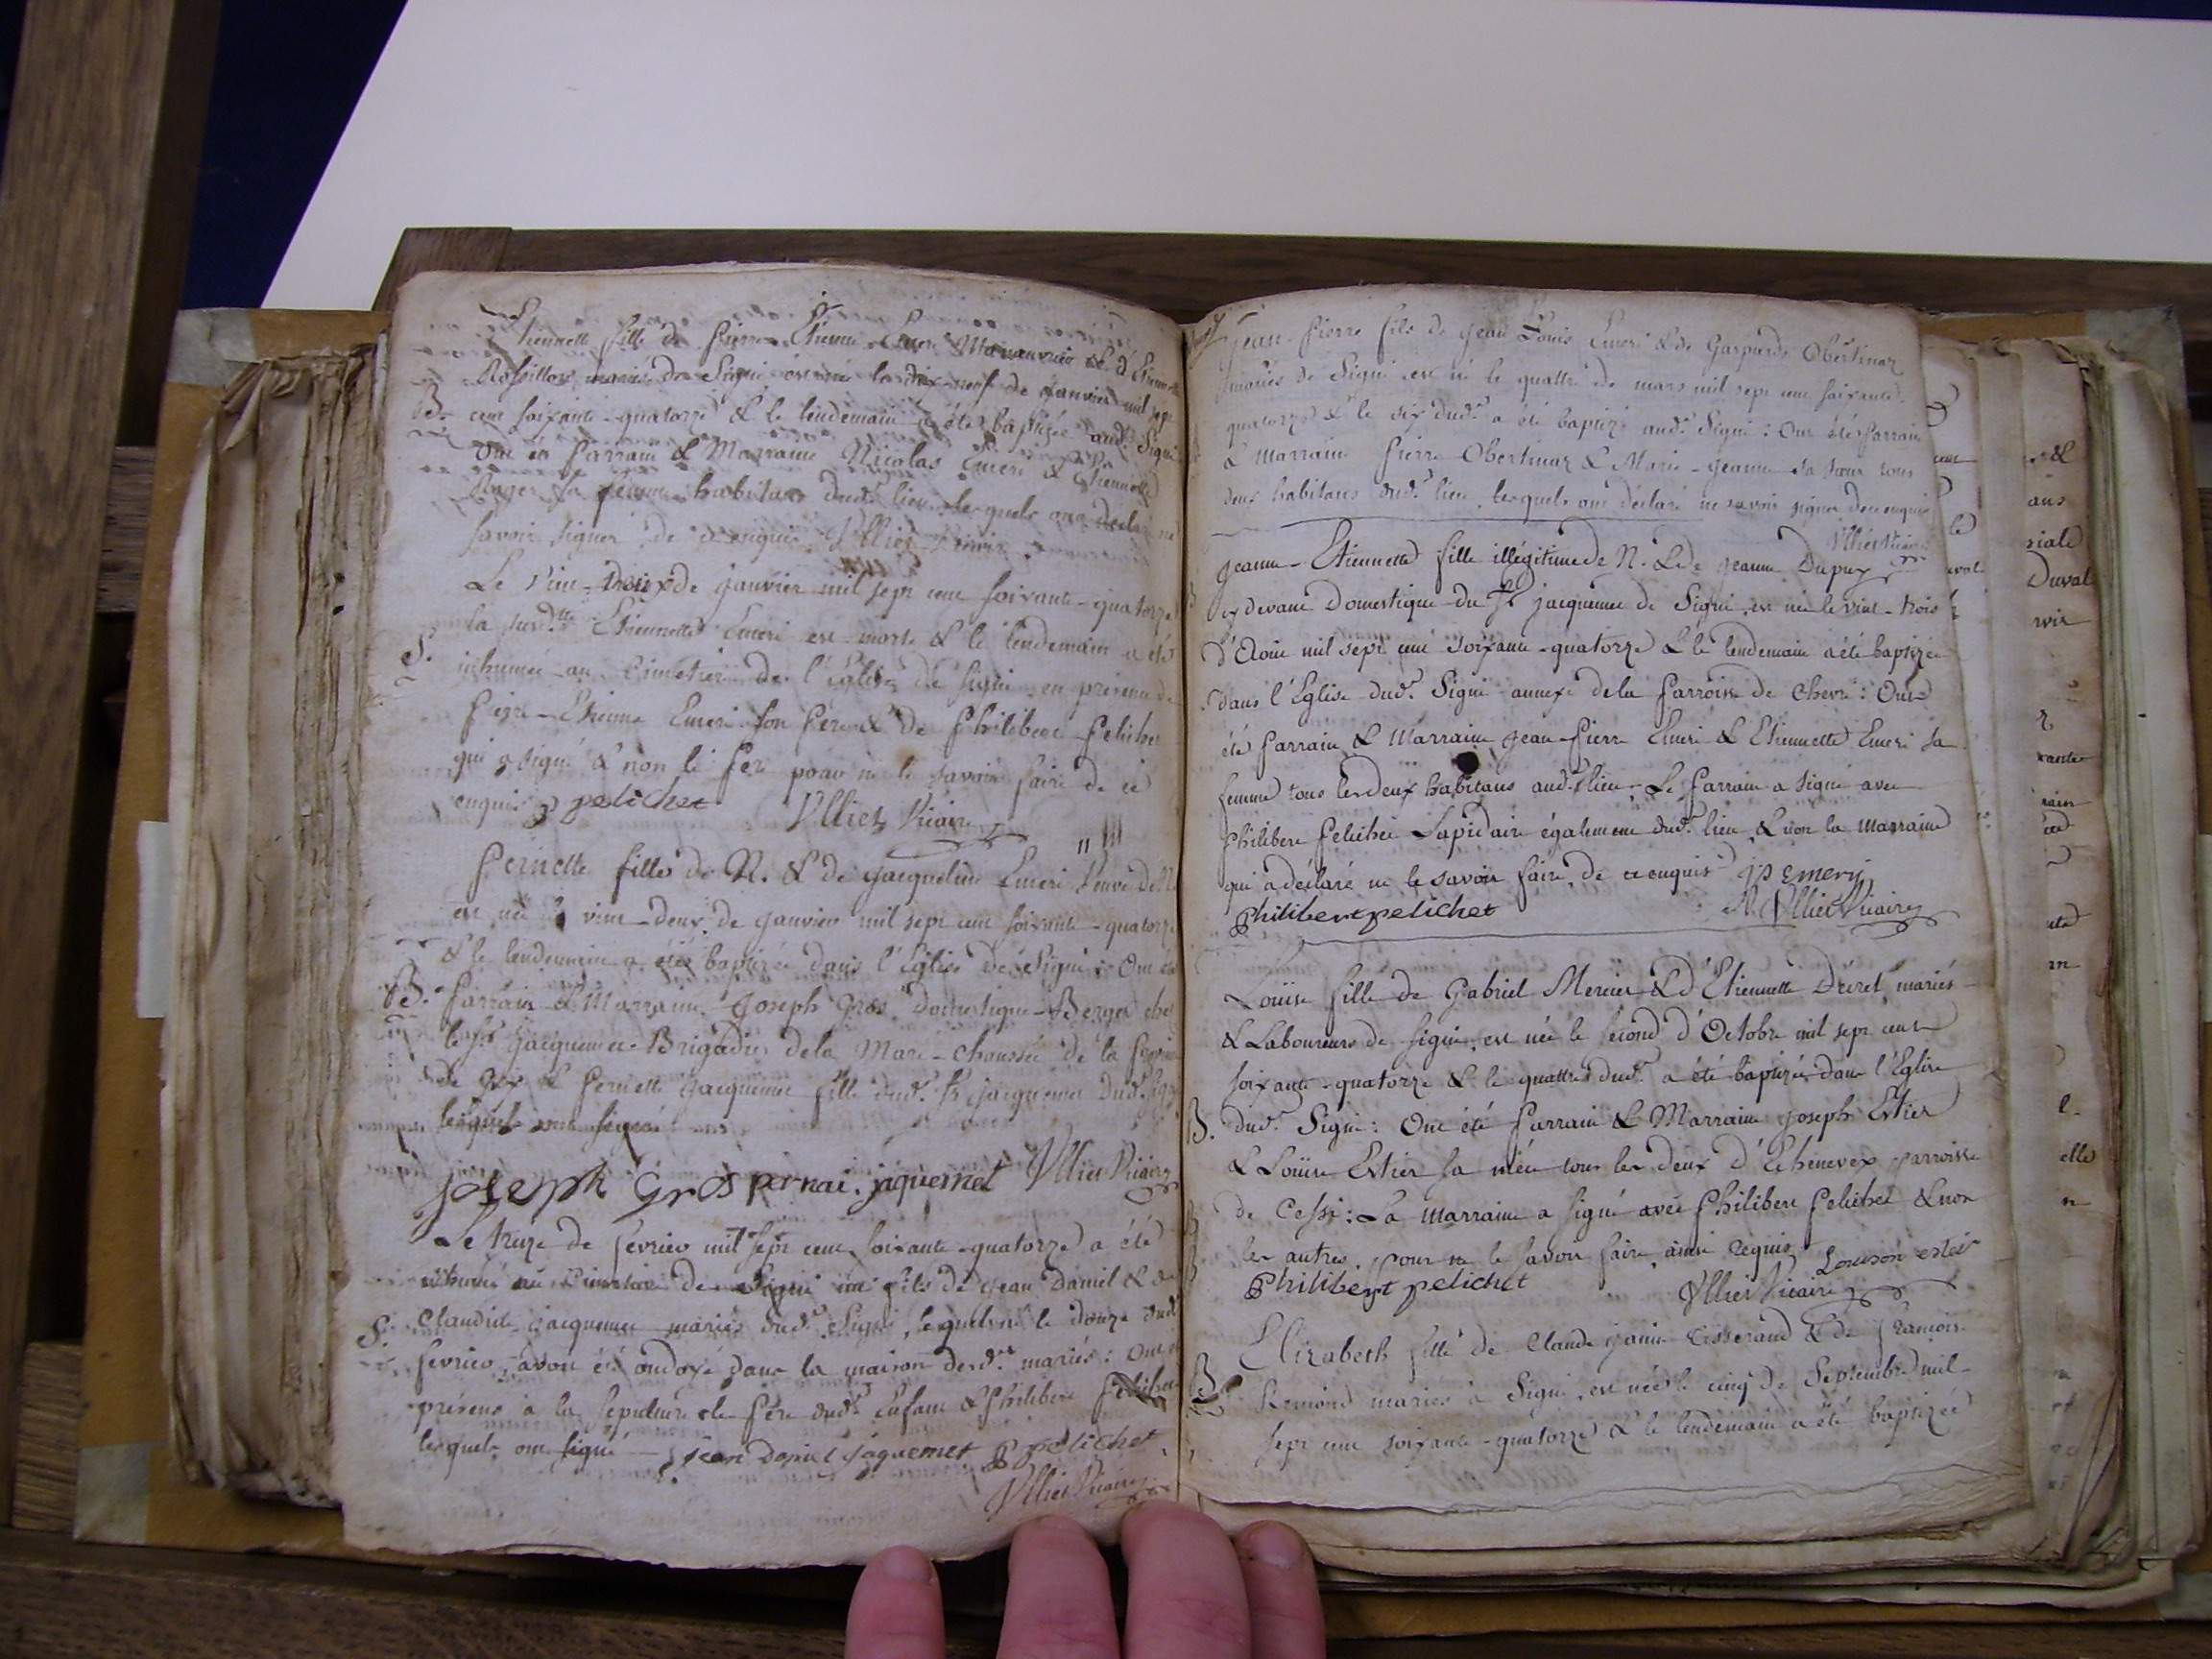 Etiennette fille de Pierre Etienne Emeri Manouvrier & d'Etiennette
Rossillon mariés de Signi est née le dix-neuf de janvier mil sept
B. cent soixante-quatorze & le lendemain a été baptisée aud.t Signi
Ont été Parrain & Marraine Nicolas Emeri & Etiennette
sa femme habitans dud.t lieu lesquels ont déclaré ne
savoir signer de ce enquis Ulliet Vicaire
Le vint-trois de janvier mil sept cent soixante-quatorze
la susd.tte Etiennette Emeri est morte & le lendemain a été
S. inhumée au Cimetière de l'Eglise de Signi en présence de
Pierre-Etienne Emeri son Père & de Philibert Pelichet
qui a signé & non le Père pour ne le savoir faire de ce
enquis p pelichet Ulliet Vicaire
Pernette fille de N. & de Jacqueline Emeri Veuve de
est née le vint-deux de janvier mil sept cent soixante-quatorze
& le lendemain a été baptizée dans l'Eglise de Signi : Ont été
B. Parrain & Marraine Joseph Gros Domestique-Berger chez
le Sr Jacquemet Brigadier de la Maré-chaussée de la
de Gex & Pernette Jacquemet fille dud.t Sr Jacquemet dud.t
lesquels ont signé
joseph Gros pernai. jiquemet Ulliet Vicaire
Le treize de fevrier mil sept cent soixante-quatorze a été
inhumé au Cimetière de Signi un fils de Jean Daniel & de
S. Claudine Jacquemet mariés dud.t Signi, lequel né le douze dud.t
fevrier, avoit été ondoyé dans la maison desd.ts mariés : Ont été
présens à la sepulture le Père dud.t Enfant & Philibert Pelichet
lesquels ont signé jean Daniel jaquemet p pelichet
Ulliet Vicaire
Jean-Pierre fils de Jean Louis Emeri & de Gasparde Obertinaz
mariés de Signi est né le quattre de mars mil sept cent soixante-
quatorze & le six dud.t a été baptizé aud.t Signi : Ont été Parrain
& Marraine Pierre Obertinaz & Marie-Jeanne sa sœur tous
deux habitans dud.t lieu, lesquels ont déclaré ne savoir signer de ce enquis
Ulliet Vicaire
Jeanne-Etiennette fille illégitime de N. & de Jeanne Dupuy
cy devant Domestique du Sr Jacquemet de Signi, est née le vint-trois
d'Aout mil sept cent soixante-quatorze & le lendemain a été baptizée
dans l'Eglise dud.t Signi annexe de la Parroisse de Chevri : Ont
été Parrain & Marraine Jean-Pierre Emeri & Etiennette Emeri sa
femme tous les deux habitans aud.t lieu. Le Parrain a signé avec
Philibert Pelichet Lapidaire également dud.t lieu, & non la Marraine
qui a déclaré ne le savoir faire, de ce enquis jp emery
Philibert pelichet Ulliet Vicaire
Loüise fille de Gabriel Mercier & d'Etiennette Duret mariés
& Laboureurs de Signi, est née le second d'Octobre mil sept cent
soixante-quatorze & le quattre dud.t a été baptizée dans l'Eglise
B. dud.t Signi : Ont été Parrain & Marraine Joseph Estier
& Loüise Estier sa nièce tous les deux d'Echenevex parroisse
de Cessi : La Marraine a signé avec Philibert Pelichet & non
les autres, pour ne le savoir faire ainsi requis. Louison estier
Philibert pelichet Ulliet Vicaire
Elizabeth fille de Claude Janin Tisserand & de Francoise
B. Remond mariés à Signi, est née le cinq de Septembre mil
sept cent soixante-quatorze & le lendemain a été baptizée